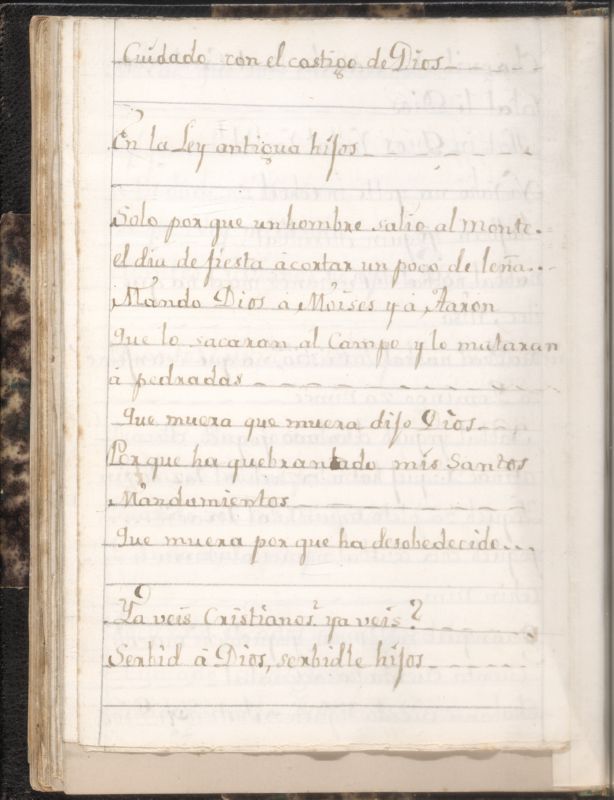 Cuidado con el castigo de Dios
En la Ley antigua hijos
Solo por que un hombre salio al monte.
el dia de fiesta á cortar un poco de leña..
Mando Dios á Moises y á Aaron
Que lo sacaran al Campo y lo mataran
á pedradas
Que muera que muera dijo Dios
Por que ha quebrantado mis Santos
Mandamientos
Que muera por que ha desobedecido...
Ya veis Cristianos? ya veis?
Serbid á Dios, serbidle hijos